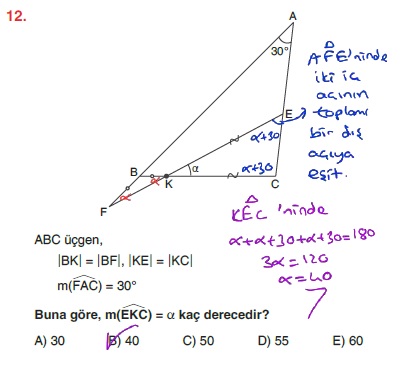 12.
A
30°
AFE'ninde
iki iç
açının
toplamı
bir dış
açıya
eşit.
E
α+30
B
α
K
α
α+30
C
F
α
KEC'ninde
α+α+30+α+30=180
3α=120
α=40
ABC üçgen,
|BK| = |BF|, |KE| = |KC|
m(FAC) = 30°
Buna göre, m(EKC) = α kaç derecedir?
A) 30 B) 40 C) 50 D) 55 E) 60